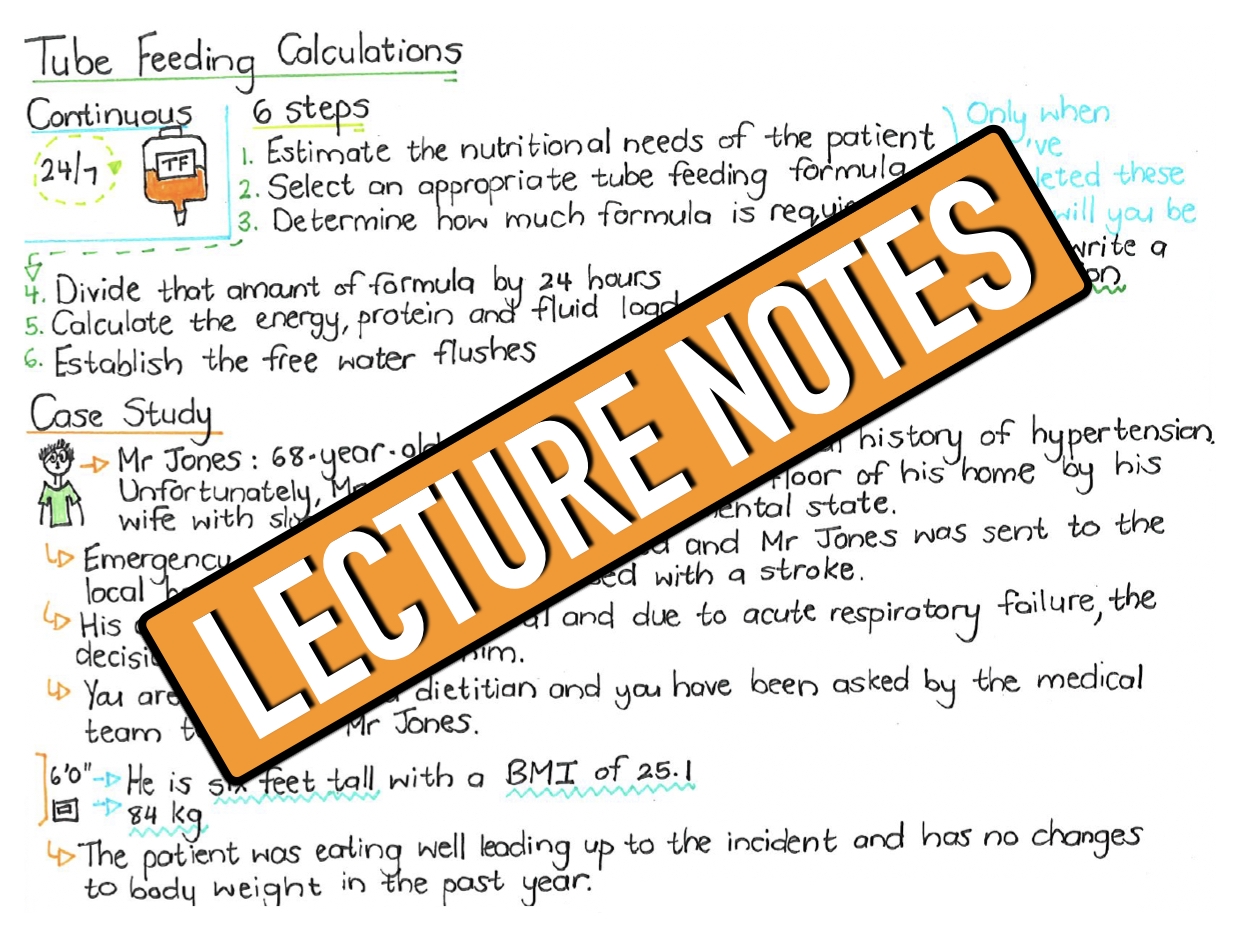 Tube Feeding Calculations
Continuous
24/7
TF
6 steps
1. Estimate the nutritional needs of the patient
2. Select an appropriate tube feeding formula
3. Determine how much formula is
Only when
've
these
will you be
write a
4. Divide that amount of formula by 24 hours
5. Calculate the energy, protein and fluid load
6. Establish the free water flushes
LECTURE NOTES
Case Study
Mr Jones : 68-year-old history of hypertension.
Unfortunately, of his home by his
wife with state.
Emergency and Mr Jones was sent to the
local with a stroke.
His and due to acute respiratory failure, the
him.
You are dietitian and you have been asked by the medical
team Mr Jones.
6'0" He is six feet tall with a BMI of 25.1
84 kg
The patient was eating well leading up to the incident and has no changes
to body weight in the past year.